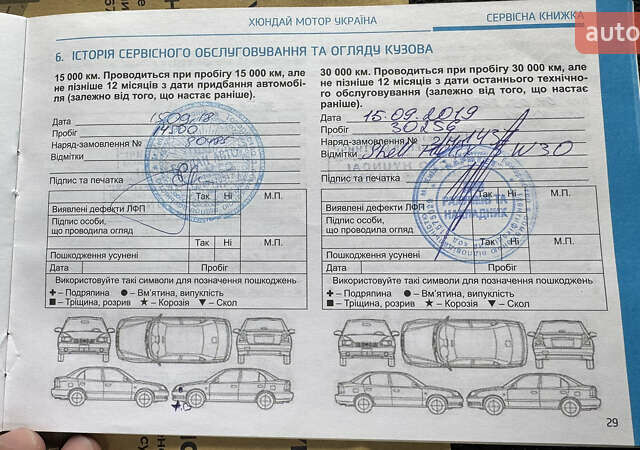 ХЮНДАЙ МОТОР УКРАЇНА
СЕРВІСНА КНИЖКА
auto
6. ІСТОРІЯ СЕРВІСНОГО ОБСЛУГОВУВАННЯ ТА ОГЛЯДУ КУЗОВА
15 000 км. Проводиться при пробігу 15 000 км, але
не пізніше 12 місяців з дати придбання автомобі-
ля (залежно від того, що настає раніше).
Дата
Пробіг 14500
Наряд-замовлення №
Відмітки
Підпис та печатка
Так Ні М.П.
Виявлені дефекти ЛФП
Підпис особи,
що проводила огляд
Так Ні М.П.
Пошкодження усунені
Дата Пробіг
Використовуйте такі символи для позначення пошкоджень
+ – Подряпина ● – Вм'ятина, випуклість
■ – Тріщина, розрив ★ – Корозія ▼ – Скол
30 000 км. Проводиться при пробігу 30 000 км, але
не пізніше 12 місяців з дати останнього технічно-
го обслуговування (залежно від того, що настає
раніше).
Дата 15.09.2019
Пробіг 30256
Наряд-замовлення №
Відмітки Shell
Підпис та печатка
РАХУНКІВ ТА
НАКЛАДНИХ
Так Ні М.П.
Виявлені дефекти ЛФП
Підпис особи,
що проводила огляд
Так Ні М.П.
Пошкодження усунені
Дата Пробіг
Використовуйте такі символи для позначення пошкоджень
+ – Подряпина ● – Вм'ятина, випуклість
■ – Тріщина, розрив ★ – Корозія ▼ – Скол
29